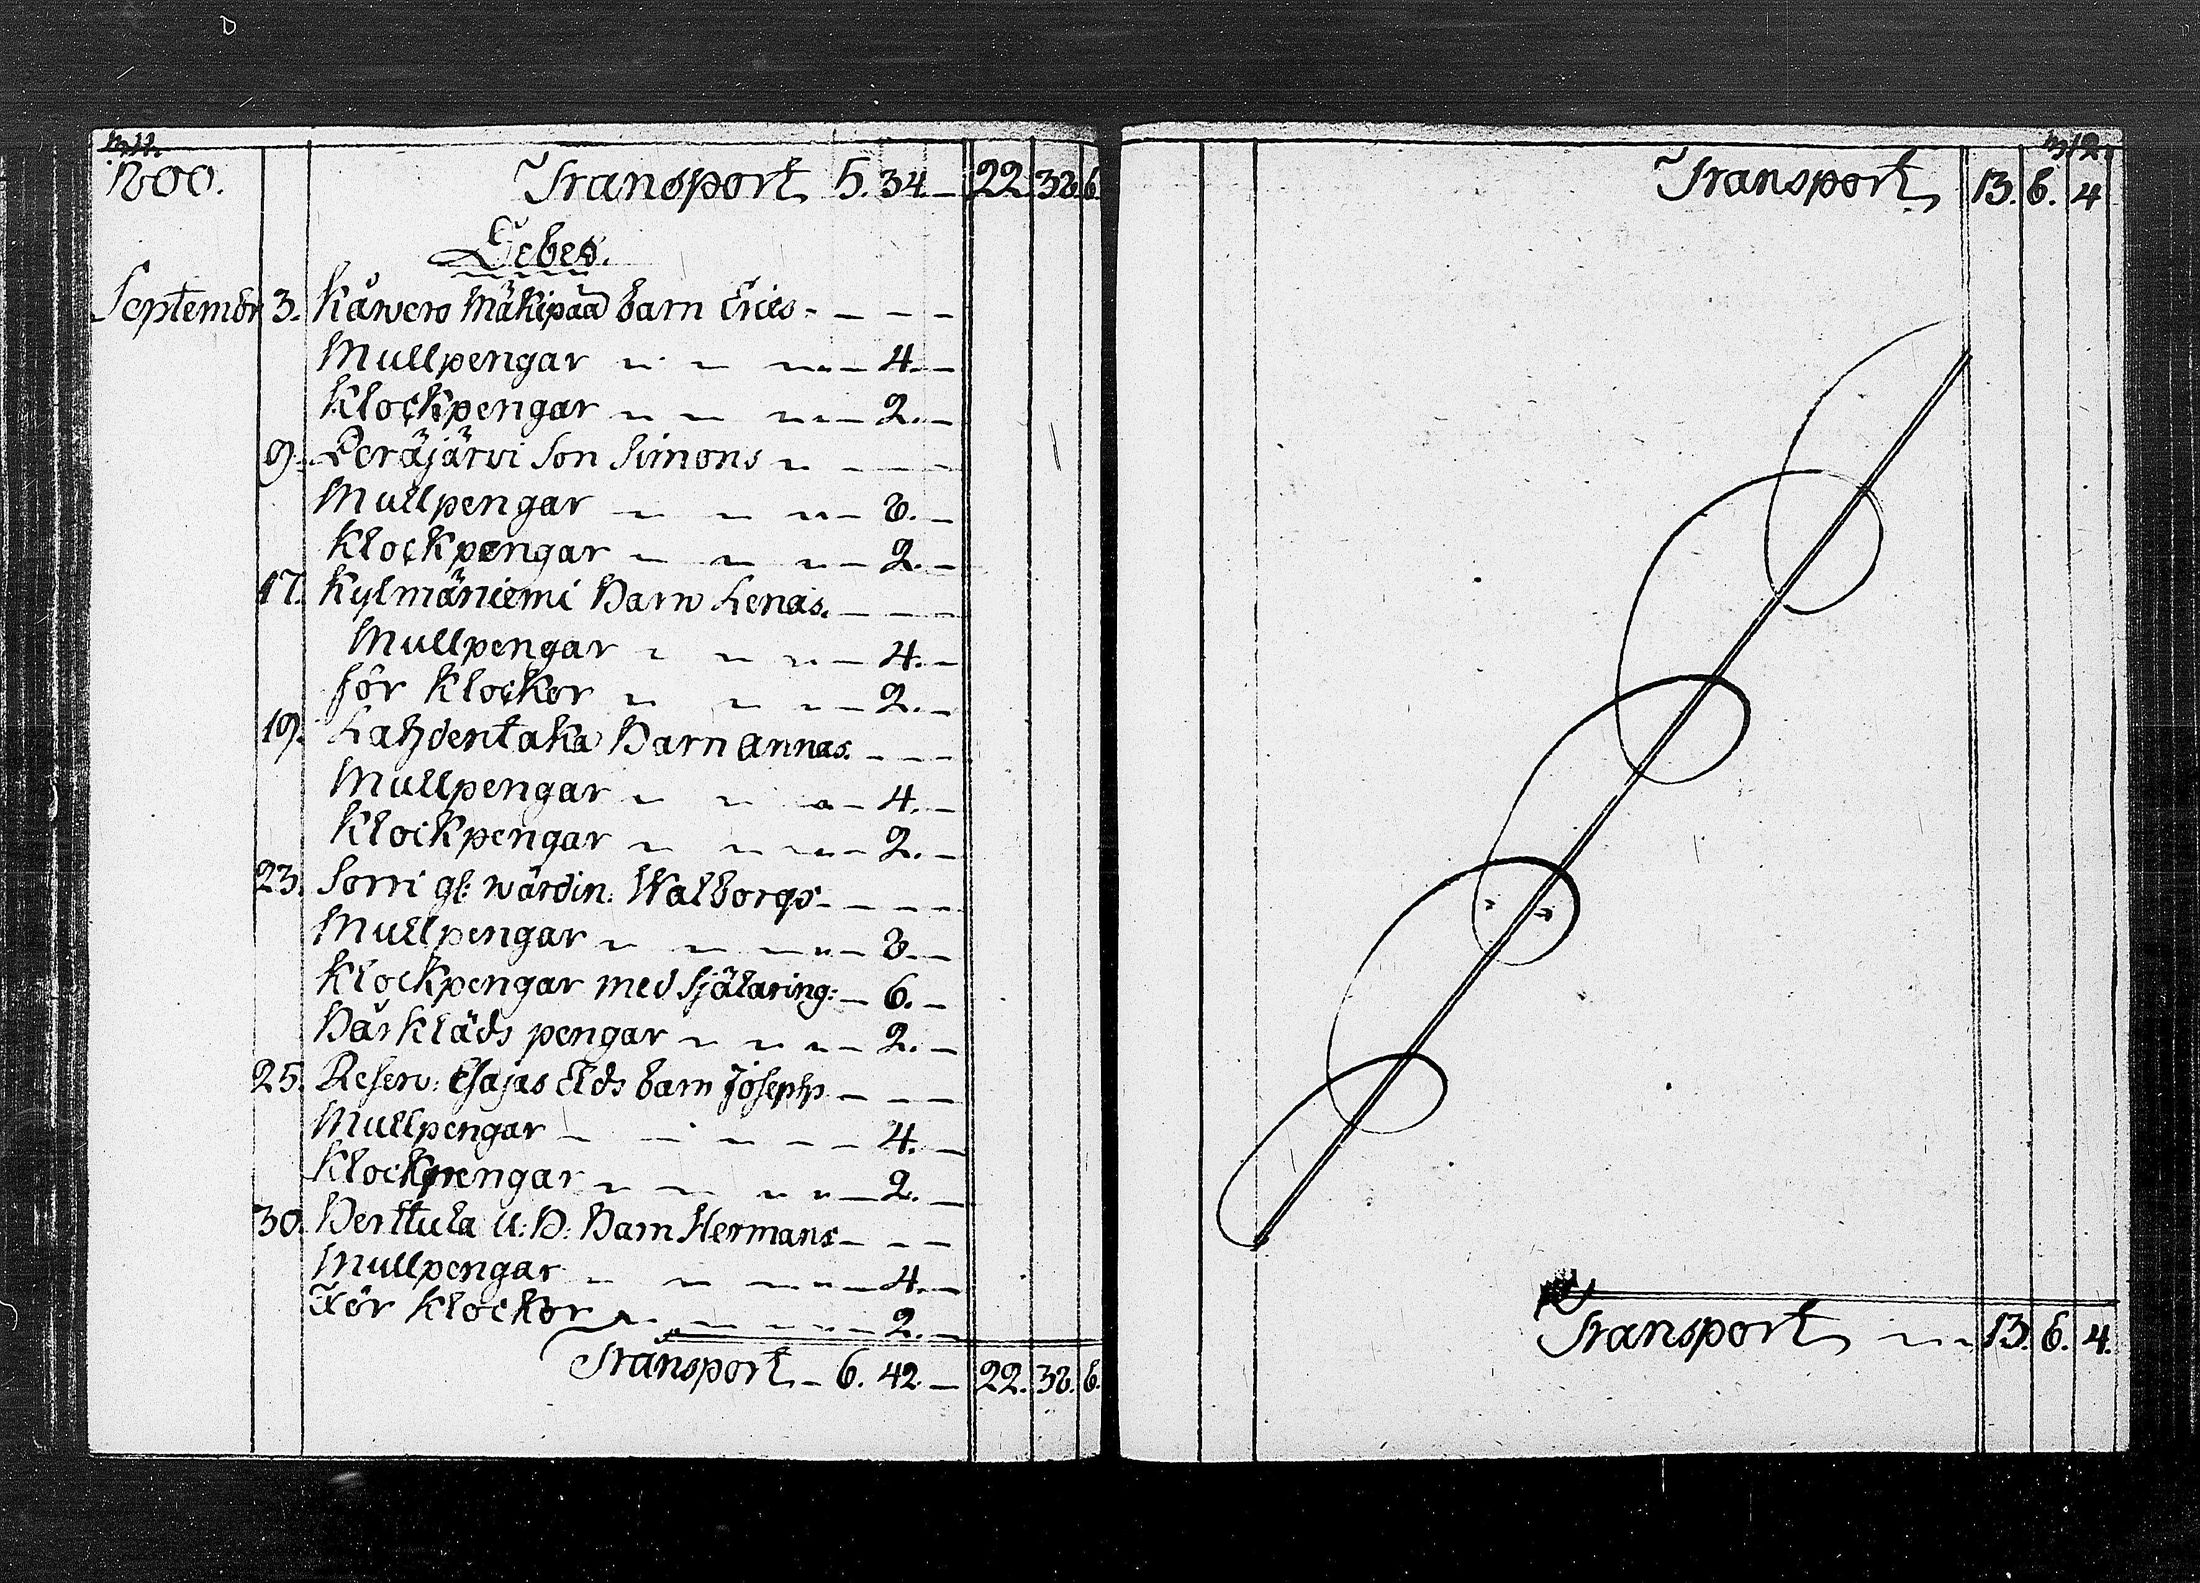 n 11.
1800. Transport 5. 34 — 22. 38. 6.
Debet.
Septembr 3. Kåwero Mäkipää barn Erics - — — —
Mullpengar — 4. —
Klockpengar — 2. —
9. Peräjärvi Son Simons — — —
Mullpengar — 8. —
Klockpengar — 2. —
17. Kylmäniemi Barn Lenas. — — —
Mullpengar — 4. —
för Klockor — 2. —
19. Lahdentaka Barn Annas. — — —
Mullpengar — 4. —
Klockpengar — 2. —
23. Sorri gl: wärdin: Walborgs — — —
Mullpengar — 8. —
Klockpengar med Själaring: — 6. —
Bårkläds pengar — 2. —
25. Reserv: Esajas Elds barn Josephs — — —
Mullpengar — 4. —
Klockpengar — 2. —
30. Herttula U: B: Barn Hermans — — —
Mullpengar — 4. —
För Klockor — 2. —
Transport — 6. 42. — 22. 38. 6.
n 12.
Transport 13. 6. 4
Transport — 13. 6. 4.